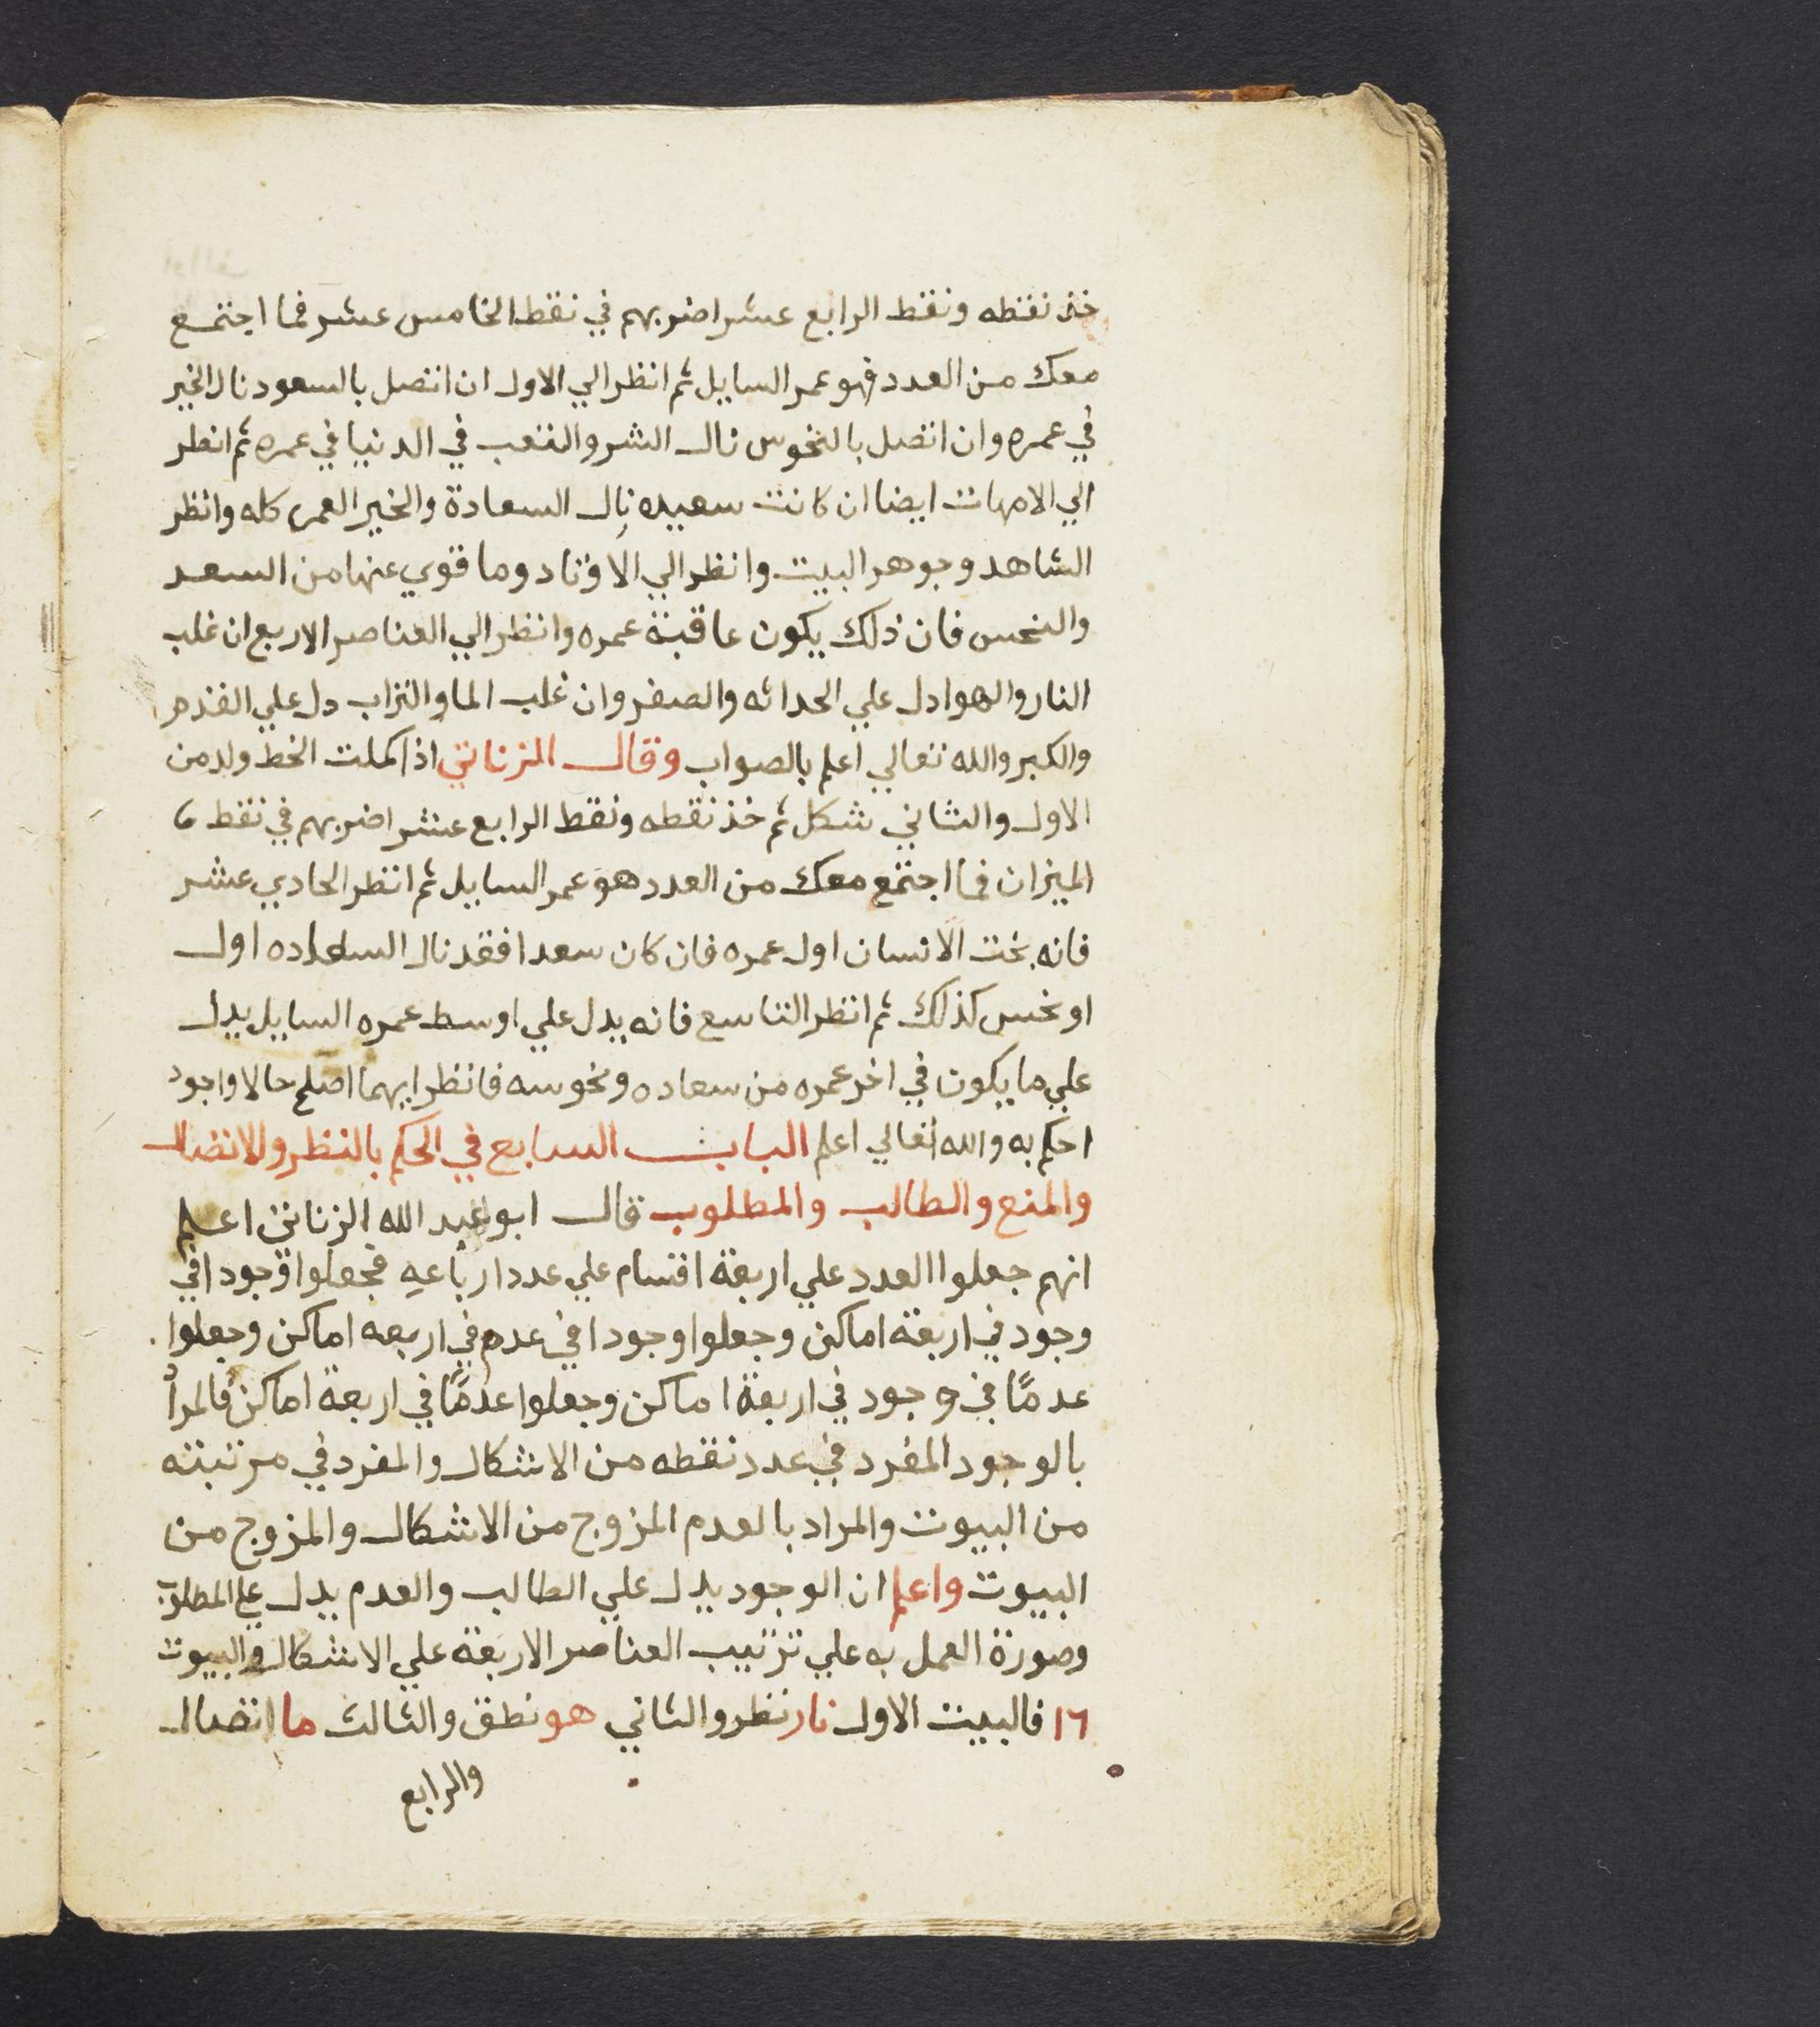 خذ نقطه ونقط الرابع عشر اضربهم في نقط الخامس عشر فما اجتمع
معك من العدد فهو عمر السايل ثم انظر الي الاول ان اتصل بالسعود نال الخير
في عمره وان اتصل بالنحوس نال الشر والتعب في الدنيا في عمره ثم انظر
الي الامهات ايضا ان كانت سعيده نال السعادة والخير العمر كله وانظر
الشاهد وجوهر البيت وانظر الي الاوتاد وما قوي عنها من السعد
والنحس فان ذلك يكون عاقبة عمره وانظر الي العناصر الاربع ان غلب
النار والهوا دل علي الحداثه والصغر وان غلب الما والتراب دل علي القدم
والكبر والله تعالي اعلم بالصواب وقال الزناتي اذا كملت الخط ولد من
الاول والثاني شكل ثم خذ نقطه ونقط الرابع عشر اضربهم في نقط
الميزان فما اجتمع معك من العدد هو عمر السايل ثم انظر الحادي عشر
فانه بخت الانسان اول عمره فان كان سعدا فقد نال السعاده اول
او نحس كذلك ثم انظر التاسع فانه يدل علي اوسط عمره السايل يدل
علي ما يكون في اخر عمره من سعاده ونحوسه فانظر ايهما اصلح حالا واجود
احكم به والله تعالي اعلم الباب السابع في الحكم بالنظر والاتصال
والمنع والطالب والمطلوب قال ابو عبد الله الزناتي اعلم
انهم جعلوا العدد علي اربعة اقسام علي عدد ارباعه فجعلوا وجودا في
وجود في اربعة اماكن وجعلوا وجودا في عدم في اربعه اماكن وجعلوا
عدمًا في وجود في اربعة اماكن وجعلوا عدمًا في اربعة اماكن فالمراد
بالوجود المفرد في عدد نقطه من الاشكال والمفرد في مرتبته
من البيوت والمراد بالعدم المزوج من الاشكال والمزوج من
البيوت واعلم ان الوجود يدل علي الطالب والعدم يدل علي المطلوب
وصورة العمل به علي ترتيب العناصر الاربعة علي الاشكال والبيوت
١٦ فالبيت الاول نار نظر والثاني هو نطق والثالث ما اتصال
والرابع